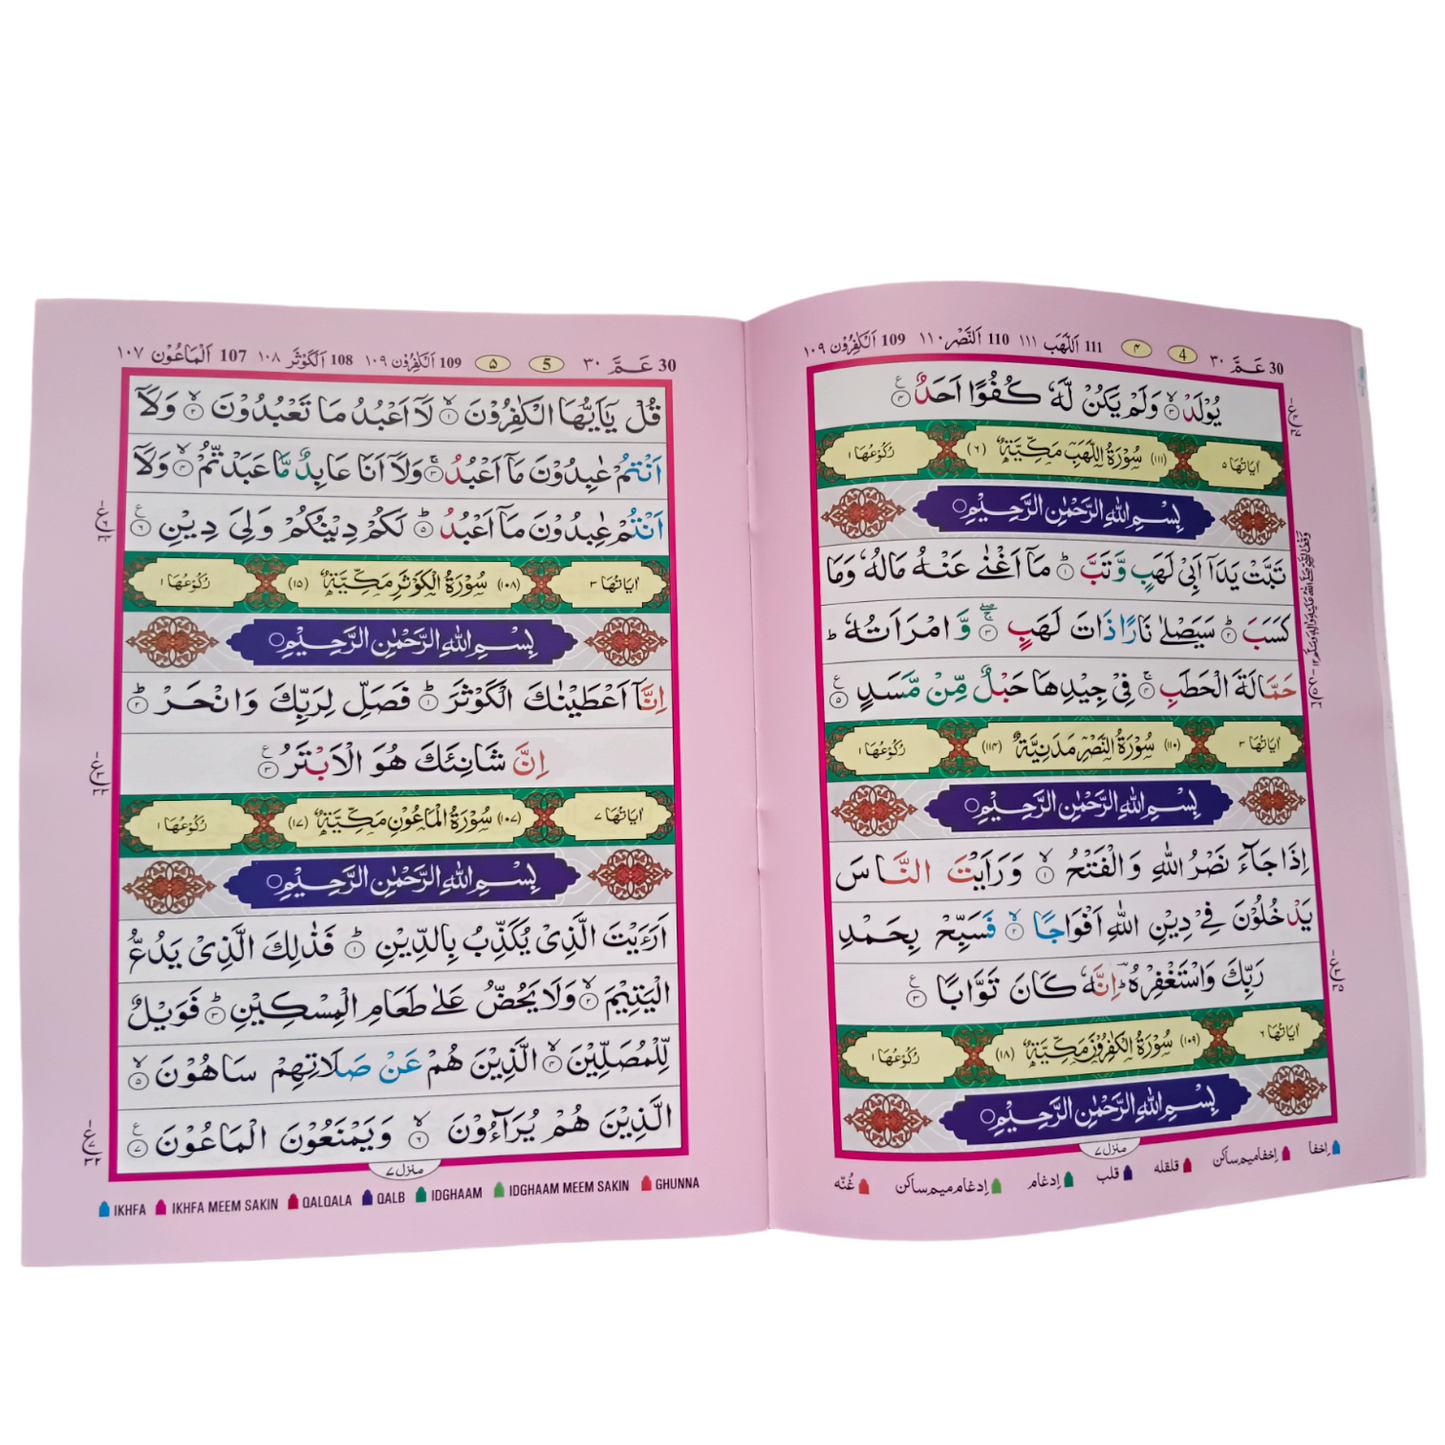 30 عَمَّ ٣٠ 4 ۴ 111 اَللَّهَب ١١١ 110 اَلنَّصْر ١١٠ 109 اَلْكٰفِرُوْن ١٠٩
يُوْلَدْ ۙ﴿٣﴾ وَلَمْ يَكُنْ لَّهٗ كُفُوًا اَحَدٌ ﴿٤﴾
اٰيَاتُهَا ٥ (١١١) سُوْرَةُ اللَّهَبِ مَكِّيَّةٌ (٦) رُكُوْعُهَا ١
بِسْمِ اللهِ الرَّحْمٰنِ الرَّحِيْمِ
تَبَّتْ يَدَآ اَبِيْ لَهَبٍ وَّتَبَّ ؕ﴿١﴾ مَآ اَغْنٰى عَنْهُ مَالُهٗ وَمَا
كَسَبَ ؕ﴿٢﴾ سَيَصْلٰى نَارًا ذَاتَ لَهَبٍ ﴿٣﴾ وَّامْرَاَتُهٗ ؕ
حَمَّالَةَ الْحَطَبِ ﴿٤﴾ فِيْ جِيْدِهَا حَبْلٌ مِّنْ مَّسَدٍ ﴿٥﴾
اٰيَاتُهَا ٣ (١١٠) سُوْرَةُ النَّصْرِ مَدَنِيَّةٌ (١١٤) رُكُوْعُهَا ١
بِسْمِ اللهِ الرَّحْمٰنِ الرَّحِيْمِ
اِذَا جَآءَ نَصْرُ اللهِ وَالْفَتْحُ ۙ﴿١﴾ وَرَاَيْتَ النَّاسَ
يَدْخُلُوْنَ فِيْ دِيْنِ اللهِ اَفْوَاجًا ۙ﴿٢﴾ فَسَبِّحْ بِحَمْدِ
رَبِّكَ وَاسْتَغْفِرْهُ ؕ اِنَّهٗ كَانَ تَوَّابًا ﴿٣﴾
اٰيَاتُهَا ٦ (١٠٩) سُوْرَةُ الْكٰفِرُوْنَ مَكِّيَّةٌ (١٨) رُكُوْعُهَا ١
بِسْمِ اللهِ الرَّحْمٰنِ الرَّحِيْمِ
منزل ٧
اِخفا اِخفامیم ساکن قلقلہ قلب اِدغام اِدغام میم ساکن غُنّہ
30 عَمَّ ٣٠ 5 ۵ 109 اَلْكٰفِرُوْن ١٠٩ 108 اَلْكَوْثَر ١٠٨ 107 اَلْمَاعُوْن ١٠٧
قُلْ يٰٓاَيُّهَا الْكٰفِرُوْنَ ۙ﴿١﴾ لَآ اَعْبُدُ مَا تَعْبُدُوْنَ ۙ﴿٢﴾ وَلَآ
اَنْتُمْ عٰبِدُوْنَ مَآ اَعْبُدُ ﴿٣﴾ وَلَآ اَنَا عَابِدٌ مَّا عَبَدْتُّمْ ۙ﴿٤﴾ وَلَآ
اَنْتُمْ عٰبِدُوْنَ مَآ اَعْبُدُ ؕ﴿٥﴾ لَكُمْ دِيْنُكُمْ وَلِيَ دِيْنِ ﴿٦﴾
اٰيَاتُهَا ٣ (١٠٨) سُوْرَةُ الْكَوْثَرِ مَكِّيَّةٌ (١٥) رُكُوْعُهَا ١
بِسْمِ اللهِ الرَّحْمٰنِ الرَّحِيْمِ
اِنَّآ اَعْطَيْنٰكَ الْكَوْثَرَ ؕ﴿١﴾ فَصَلِّ لِرَبِّكَ وَانْحَرْ ؕ﴿٢﴾
اِنَّ شَانِئَكَ هُوَ الْاَبْتَرُ ﴿٣﴾
اٰيَاتُهَا ٧ (١٠٧) سُوْرَةُ الْمَاعُوْنِ مَكِّيَّةٌ (١٧) رُكُوْعُهَا ١
بِسْمِ اللهِ الرَّحْمٰنِ الرَّحِيْمِ
اَرَءَيْتَ الَّذِيْ يُكَذِّبُ بِالدِّيْنِ ؕ﴿١﴾ فَذٰلِكَ الَّذِيْ يَدُعُّ
الْيَتِيْمَ ۙ﴿٢﴾ وَلَا يَحُضُّ عَلٰى طَعَامِ الْمِسْكِيْنِ ؕ﴿٣﴾ فَوَيْلٌ
لِّلْمُصَلِّيْنَ ۙ﴿٤﴾ الَّذِيْنَ هُمْ عَنْ صَلَاتِهِمْ سَاهُوْنَ ۙ﴿٥﴾
الَّذِيْنَ هُمْ يُرَآءُوْنَ ۙ﴿٦﴾ وَيَمْنَعُوْنَ الْمَاعُوْنَ ﴿٧﴾
منزل ٧
IKHFA IKHFA MEEM SAKIN QALQALA QALB IDGHAAM IDGHAAM MEEM SAKIN GHUNNA